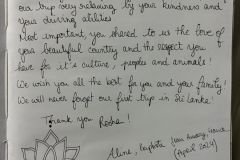 our trip very relaxing, by your kindness and
your driving abilities
Most important you shared to us the love of
your beautiful country and the respect you
have for it's culture, peoples and animals!
We wish you all the best for you and your family!
We will never forget our first trip in Sri Lanka!
Thank you Rosha!
Aline, Baptiste from
(April 2024)